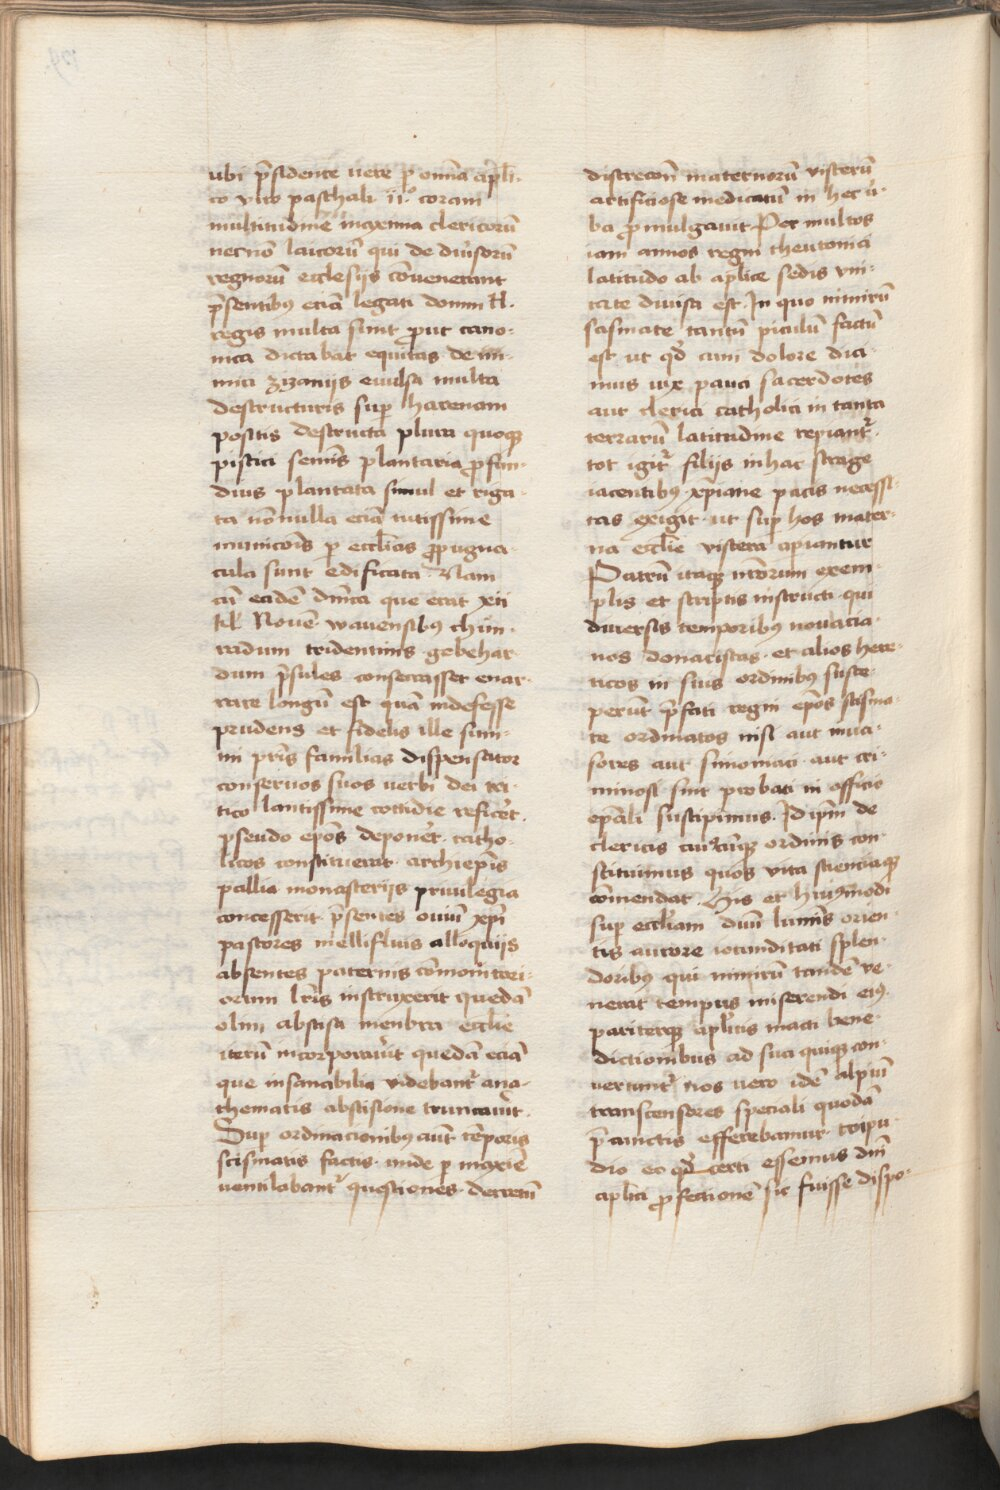 ubi p̄sidente uere p̱ om̄ia ap̄li-
co viro paschali ii.º coram
multitudine maxima clericorū
necnō laicorū qui de diūsorū
regnorū ecclesijs cōuenerant
p̄sentibꝫ eciā legati domni H̄.
regis multa sunt prout cano-
nica dictabat equitas de ini-
mici zizanijs euulsa multa
destructuris suꝑ harenam
positis destructa plura quoqꝫ
pistici semīs plantaria profun-
dius plantata simul et riga-
ta nōnulla eciā tutissime
municoīs p ecclīas propugna-
cula sunt edificata. Nam
cū eadē dn̄ica que erat xii
kl̄ Nouē wauensibꝫ chūn-
radum tridentinis gebehar-
dum p̄sules consecrasset enar-
rare longū est quā indefesse
prudens et fidelis ille sum-
mi pr̄is familias dispensator
conseruos suos uerbi dei tri-
tico lautissime cottidie reficēt.
pseudo epōs deponēt. catho-
licos constituerat. archiepīs
pallia monasterijs priuilegia
concesserit. p̄sentes ouiū xp̄i
pastores mellifluis alloquijs
absentes paternis cōmonitori-
orum lr̄is instruxerit quedā
olim abscisa menbra eccl̄ie
iterū incorporauīt quedā eciā
que insanabilia videbant᷑ ana-
thematis abscisione truncauīt.
Sup ordinacionibꝫ aūt tēporis
scismatis factis. unde p maxīe
uentilabant᷑ questiones. decretū
discrecōn̄ maternorū visterū
artificiose medicatū in hec ū-
ba promulgauit Per multos
iam annos regni theutonici
latitudo ab ap̄lice sedis vni-
tate diuisa est. In quo nimirū
scismate tantū piculū factū
est ut qd̄ cum dolore dici-
mus uix pauci sacerdotes
aut clerici catholici in tanta
terrarū latitudine repiant᷑.
tot igit᷑ filijs in hac strage
iacentibꝫ xp̄iane pacis necessi-
tas exigit. ut suꝑ hos mater-
na eccl̄ie viscera apiantur
Patrū itaqꝫ nr̄orum exem-
plis et scriptis instructi. qui
diuersis temporibꝫ nouacia-
nos donatistas. et alios here-
ticos in suis ordinibꝫ susce-
perūt. p̄fati regni epōs scisma-
te ordinatos nisi aut inua-
sores aut simoniaci aut cri-
minosi sint probati in officio
epāli suscipimus. Id ipm̄ de
clericis cuiꝰcūqꝫ ordinis con-
stituimus quos vita scienciaqꝫ
cōmendat. His et huiꝰmodi
sup eccl̄iam diuī lumīs orien-
tis aurore iocunditati splen-
doribꝫ qui nimirū tandē ve-
nerat tempus miserendi eiꝰ.
pariterqꝫ ap̄licis macti bene-
dictionibus ad sua quiqꝫ con-
uertunt᷑ nos uero idē alpiū
transcensores speciali quodā
p̄ cunctis efferebamur. tripu-
dio eo qd̄ certi essemus dn̄i
ap̄lici profectionē sic fuisse dispo-